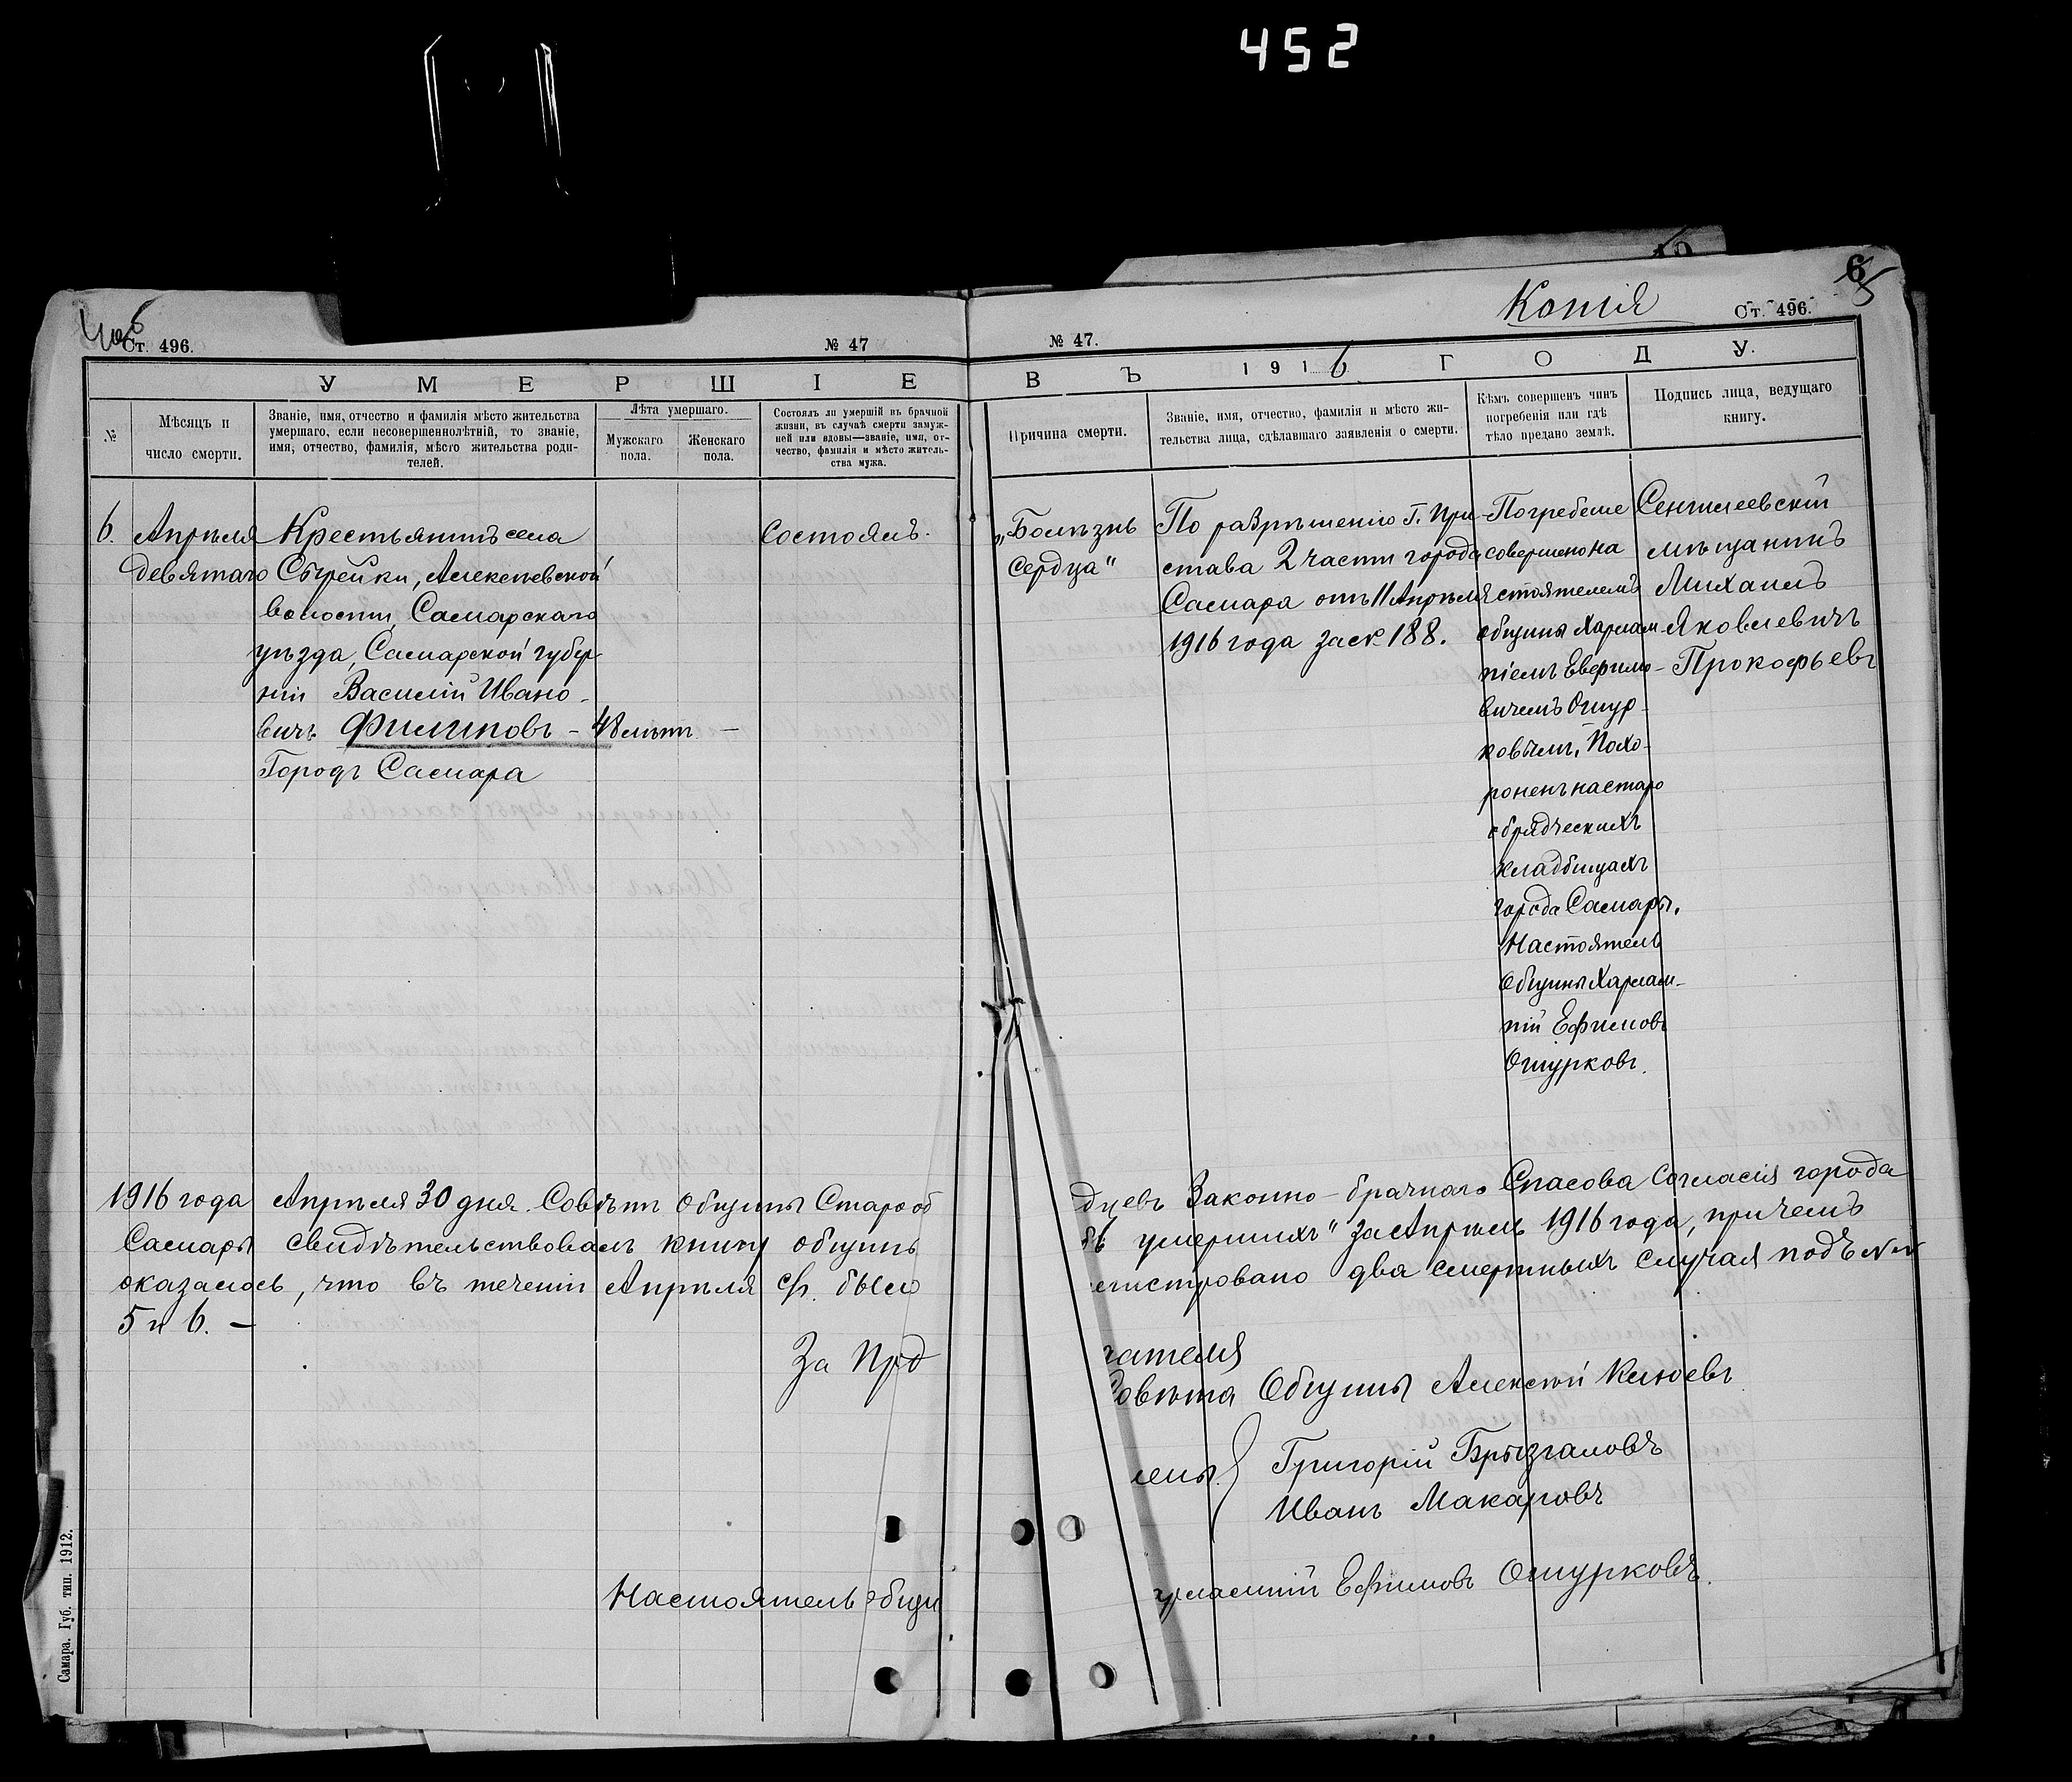 452
Копія
6
Ст. 496.
№ 47
№ 47.
Ст. 496.
УМЕРШІЕ
ВЪ 1916 ГОДУ.
№
Мѣсяцъ и
число смерти.
Званіе, имя, отчество и фамилія мѣсто жительства
умершаго, если несовершеннолѣтній, то званіе,
имя, отчество, фамилія, мѣсто жительства роди-
телей.
Лѣта умершаго.
Мужскаго
пола.
Женскаго
пола.
Состоялъ ли умершій въ брачной
жизни, въ случаѣ смерти замуж-
ней или вдовы—званіе, имя, от-
чество, фамилія и мѣсто житель-
ства мужа.
Причина смерти.
Званіе, имя, отчество, фамилія и мѣсто жи-
тельства лица, сдѣлавшаго заявленія о смерти.
Кѣмъ совершенъ чинъ
погребенія или гдѣ
тѣло предано землѣ.
Подпись лица, ведущаго
книгу.
6.
Апрѣля
девятаго
Крестьянинъ села
Сырейки, Алексѣевской
волости, Самарскаго
уѣзда, Самарской губер-
ніи Василій Ивано-
вичъ Филиповъ – 48 лѣтъ —
Городъ Самара
Состоялъ.
„Болѣзнь
сердца“
По разрѣшенію Г. При-
става 2 части города
Самара отъ 11 Апрѣля
1916 года за № 188.
Погребеніе
совершено на
стоятелемъ
общины Харлам
піемъ Евфимо-
вичемъ Ошур-
ковымъ. Похо-
роненъ на старо
обрядческихъ
кладбищахъ
города Самары.
Настоятель
Общины Харлам-
пій Ефимовъ
Ошурковъ.
Сенгилеевскій
мѣщанинъ
Михаилъ
Яковлевичъ
Прокофьевъ
1916 года Апрѣля 30 дня. Совѣтъ Общины Старооб
дцевъ Законно-брачнаго Спасова Согласія города
Самары свидѣтельствовалъ книгу общины
умершихъ“ за Апрѣль 1916 года, причемъ
оказалось, что въ теченіи Апрѣля с/г. было
егистровано два смертныхъ случая подъ №№
5 и 6. —
За Прд
ателя
Совѣта Общины Алексѣй Клюевъ
лены.
Григорій Брызгаловъ
Иванъ Макаровъ
Настоятель общи
рлампій Ефимовъ Ошурковъ.
Самара. Губ. тип. 1912.